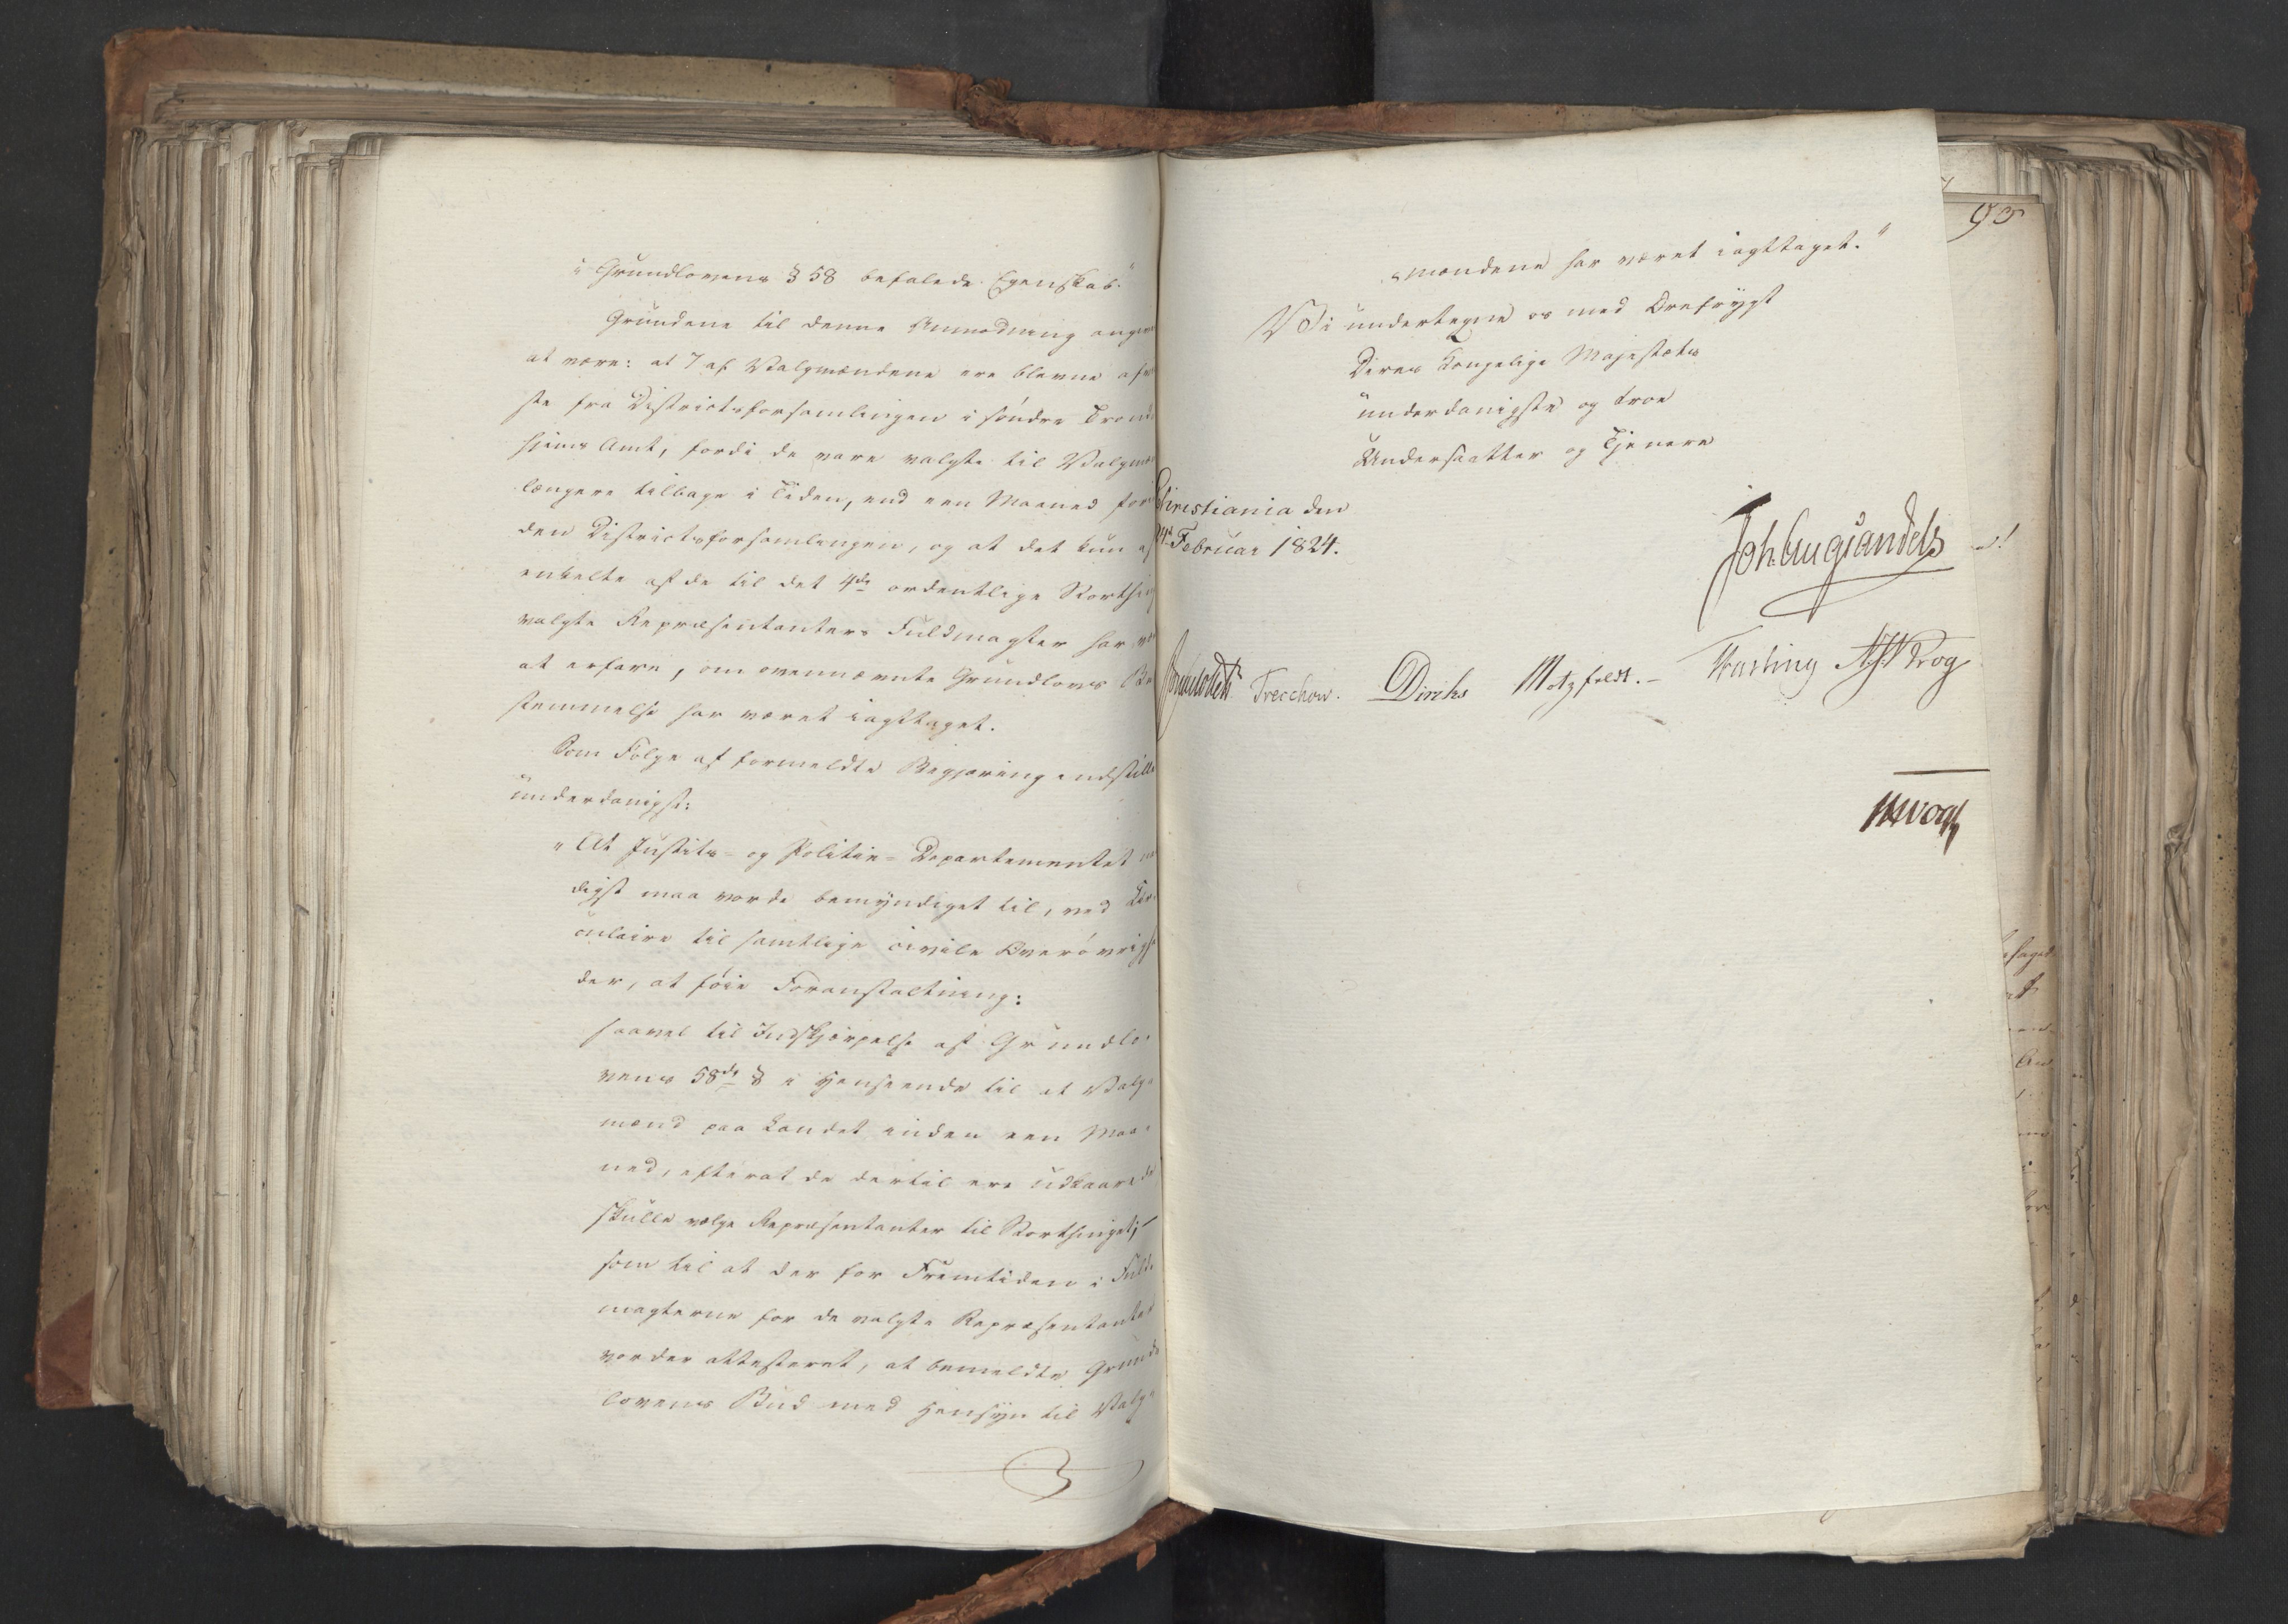 "Grundlovens § 58 befalede Egenskab."
Grundene til denne Anmodning angives
at være: at 7 af Valgmændene ere blevne afvi
ste fra Districtsforsamlingen i søndre Trond
hjems Amt, fordi de vare valgte til Valgmæ
længere tilbage i Tiden, end een Maaned for
den Districtsforsamlingen, og at det kun af
enkelte af de til det 4de ordentlige Storthing
valgte Repræsentanters Fuldmagter har væ
at erfare, om ovennævnte Grundlovs Be
stemmelse har været iagttaget.
Som Følge af formeldte Begjæring indstilles
underdanigst:
"At Justits- og Politie-Departementet naa
digst maa vorde bemyndiget til, ved Cir-
culaire til samtlige civile Overøvrighe
der, at føie Foranstaltning:
saavel til Indskjærpelse af Grundlo-
vens 58de § i Henseende til at Valg-
mænd paa Landet inden een Maa-
ned, efterat de dertil ere udkaarede
skulle vælge Repræsentanter til Storthinget;
som til at der for Fremtiden i Fuld-
magterne for de valgte Repræsentanter
vorder attesteret, at bemeldte Grund
lovens Bud med Hensyn til Valg-
mændene har været iagttaget."
Vi undertegne os med Ærefrygt
Deres Kongelige Majestæts
underdanigste og troe
Undersaatter og Tjenere
Christiania den
24de Februar 1824.
Joh. Aug. Sandels
Sommerfeldt Treschow. Diriks Motzfeldt. Fasting A. J. V. Krog
Vogt
95